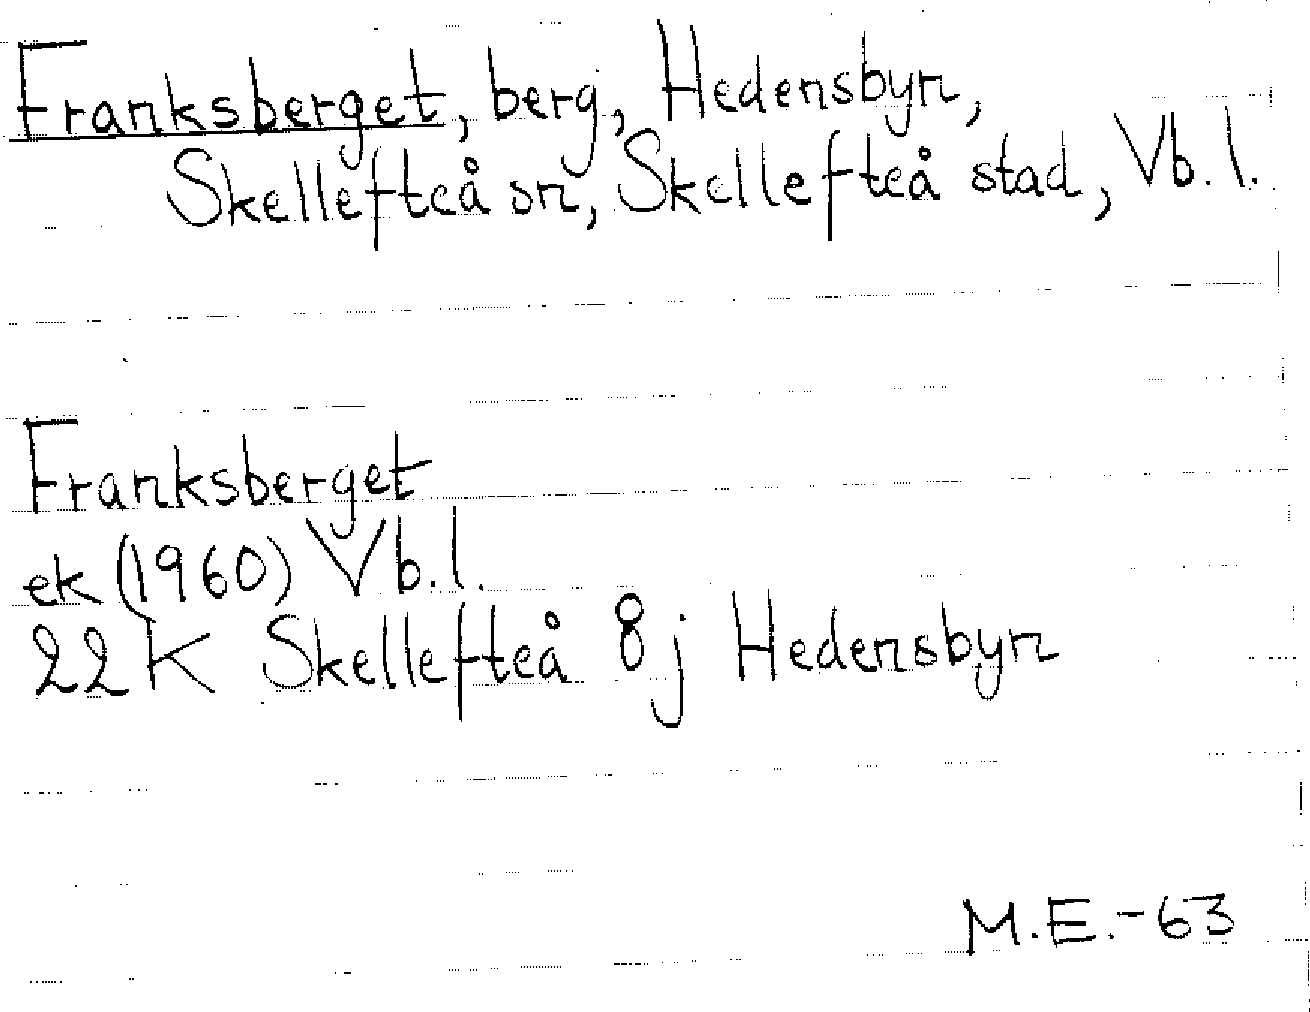 Franksberget, berg, Hedensbyn,
Skellefteå sn, Skellefteå stad, Vb. l.
Franksberget
ek (1960) Vb. l.
22 K Skellefteå 8j Hedensbyn
M.E.-63